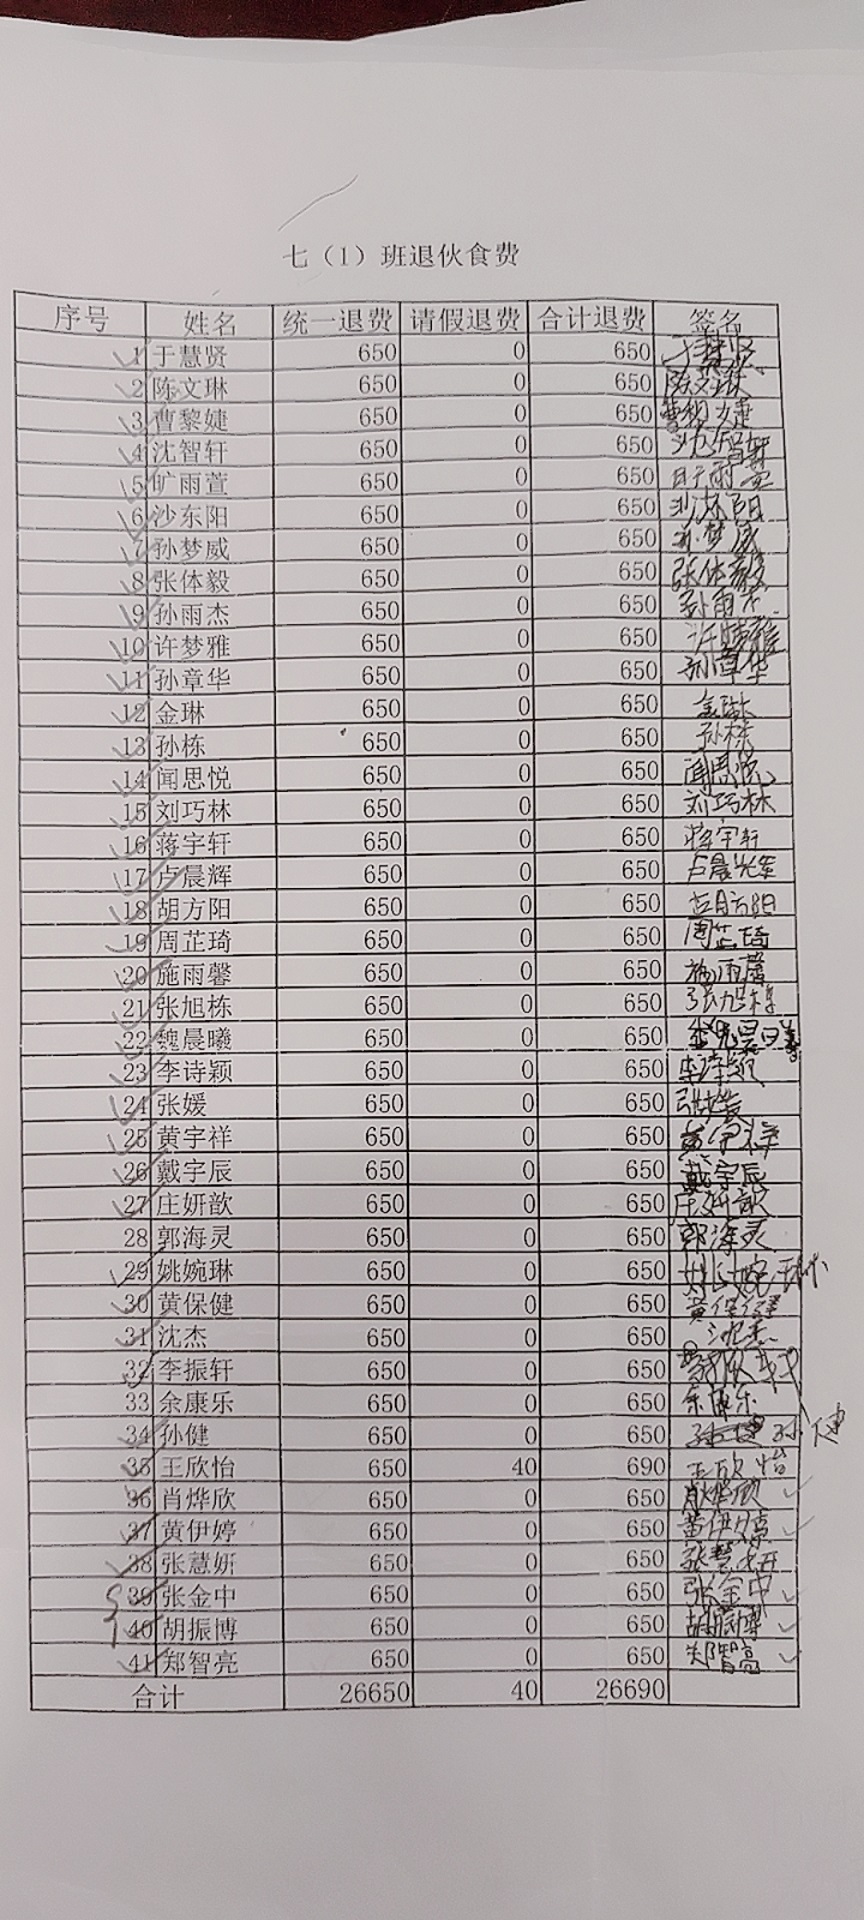 七（1）班退伙食费
序号 姓名 统一退费 请假退费 合计退费 签名
1 于慧贤 650 0 650 于慧贤
2 陈文琳 650 0 650 陈文琳
3 曹黎婕 650 0 650 曹黎婕
4 沈智轩 650 0 650 沈智轩
5 旷雨萱 650 0 650 旷雨萱
6 沙东阳 650 0 650 沙东阳
7 孙梦威 650 0 650 孙梦威
8 张体毅 650 0 650 张体毅
9 孙雨杰 650 0 650 孙雨杰
10 许梦雅 650 0 650 许梦雅
11 孙章华 650 0 650 孙章华
12 金琳 650 0 650 金琳
13 孙栋 650 0 650 孙栋
14 闻思悦 650 0 650 闻思悦
15 刘巧林 650 0 650 刘巧林
16 蒋宇轩 650 0 650 蒋宇轩
17 卢晨辉 650 0 650 卢晨辉
18 胡方阳 650 0 650 胡方阳
19 周芷琦 650 0 650 周芷琦
20 施雨馨 650 0 650 施雨馨
21 张旭栋 650 0 650 张旭栋
22 魏晨曦 650 0 650 魏晨曦
23 李诗颖 650 0 650 李诗颖
24 张媛 650 0 650 张媛
25 黄宇祥 650 0 650 黄宇祥
26 戴宇辰 650 0 650 戴宇辰
27 庄妍歆 650 0 650 庄妍歆
28 郭海灵 650 0 650 郭海灵
29 姚婉琳 650 0 650 姚婉琳
30 黄保健 650 0 650 黄保健
31 沈杰 650 0 650 沈杰
32 李振轩 650 0 650 李振轩
33 余康乐 650 0 650 余康乐
34 孙健 650 0 650 孙健
35 王欣怡 650 40 690 王欣怡
36 肖烨欣 650 0 650 肖烨欣
37 黄伊婷 650 0 650 黄伊婷
38 张慧妍 650 0 650 张慧妍
39 张金中 650 0 650 张金中
40 胡振博 650 0 650 胡振博
41 郑智亮 650 0 650 郑智亮
合计 26650 40 26690